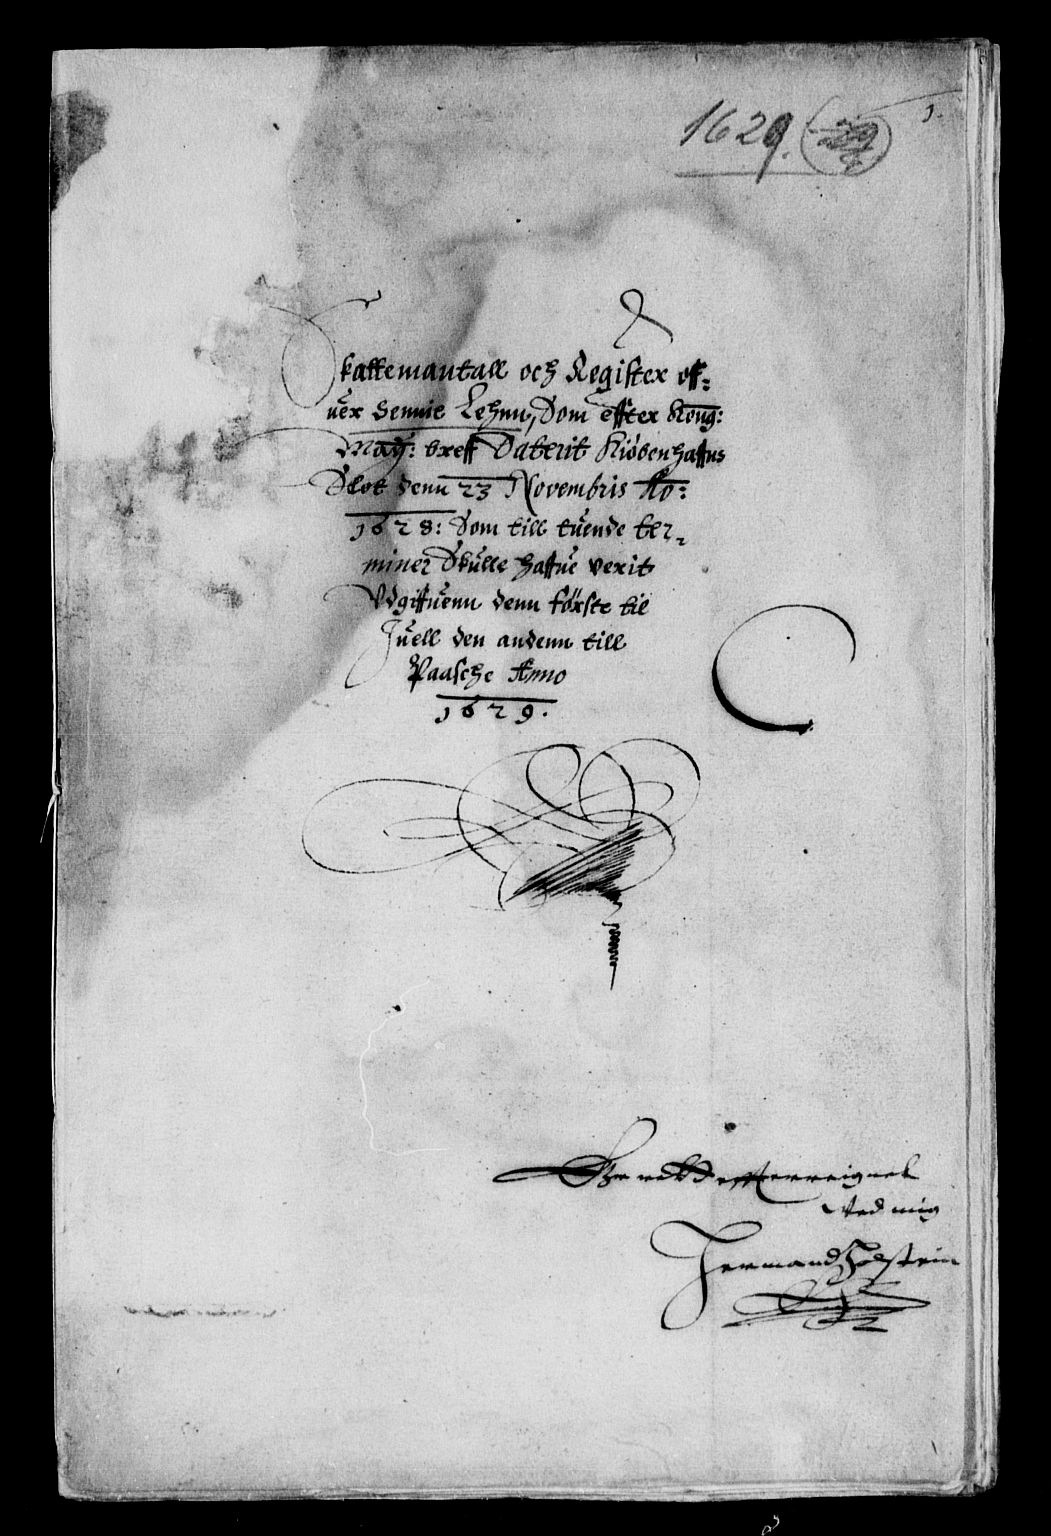 1629.
1.
Skattemantall och Register off-
uer Sennie Lehnn, Som effter Kong:
May: breff Daterit Kiöbenhaffns
Slot denn 23 Novembris Ao:
1628: Som till tuende ter-
miner Skulle haffue verit
Vdgiffuenn denn förste til
Juell den andenn till
Paasche Anno
1629.
Ved mig
Hermand Holstein